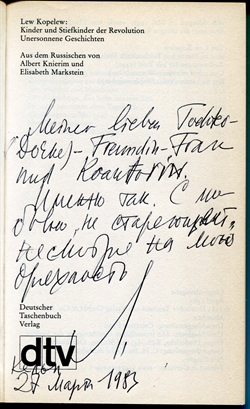 Lew Kopelew:
Kinder und Stiefkinder der Revolution
Unersonnene Geschichten
Aus dem Russischen von
Albert Knierim und
Elisabeth Markstein
Meiner lieben
Freundin-Frau
und
Именно так. С лю
бовью, не стареющей,
несмотря на мою
дряхлость
Deutscher
Taschenbuch
Verlag
dtv
Кельн
27 марта 1983